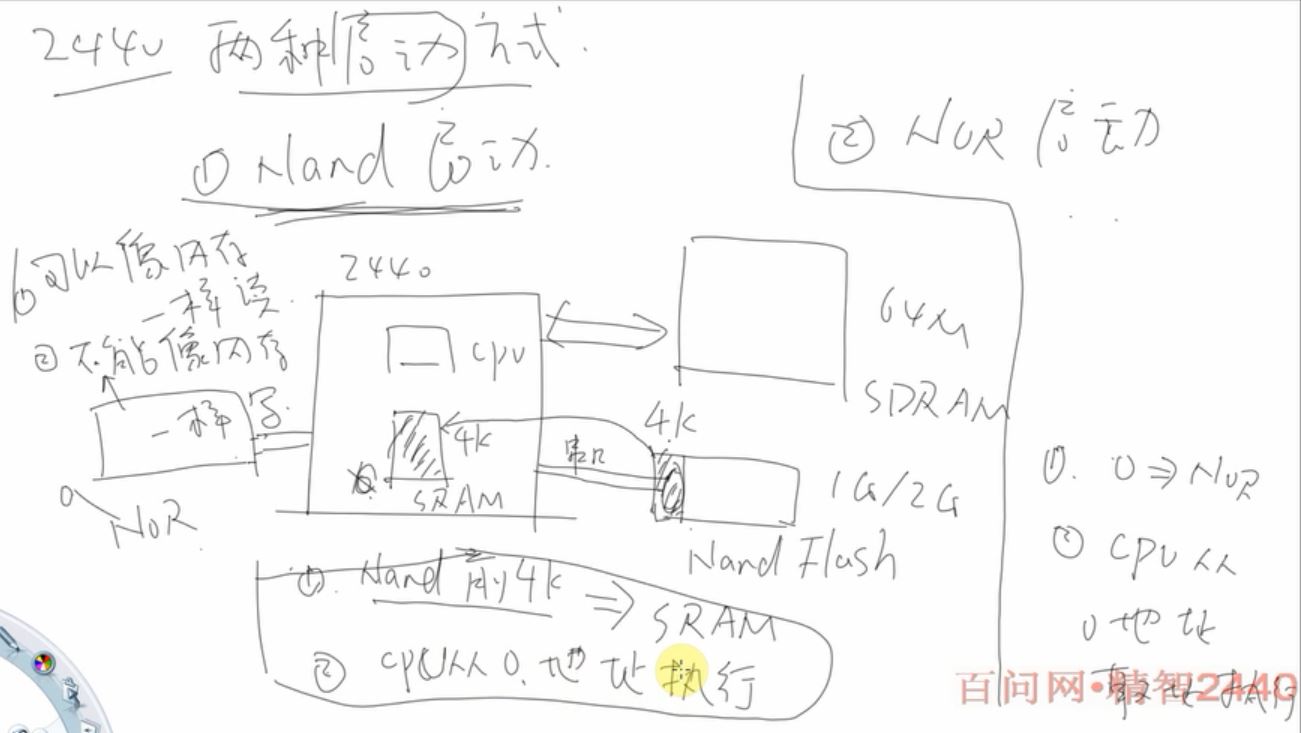 2440 两种启动方式.
① Nand 启动.
② NOR 启动
① 可以像内存
一样读.
② 不能像内存
一样写.
NOR
0
2440
cpu
4K
SRAM
0
64M
SDRAM
4K
串口
1G/2G
Nand Flash
①. Nand 前4k ⇒ SRAM
② cpu从0地址执行
①. 0⇒NOR
② cpu从
0地址
取址执行
百问网·精智2440